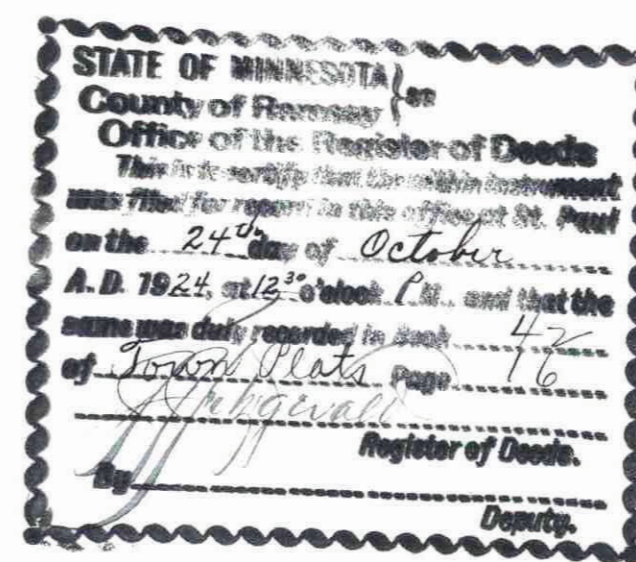 STATE OF MINNESOTA } ss
County of Ramsey
Office of the Register of Deeds
This is to certify that the within instrument
was filed for record in this office at St. Paul
on the 24th day of October
A. D. 1924, at 12 30 o'clock P M., and that the
same was duly recorded in Book 42
of Town Plats Page 16
Fitzgerald
Register of Deeds.
By
Deputy.